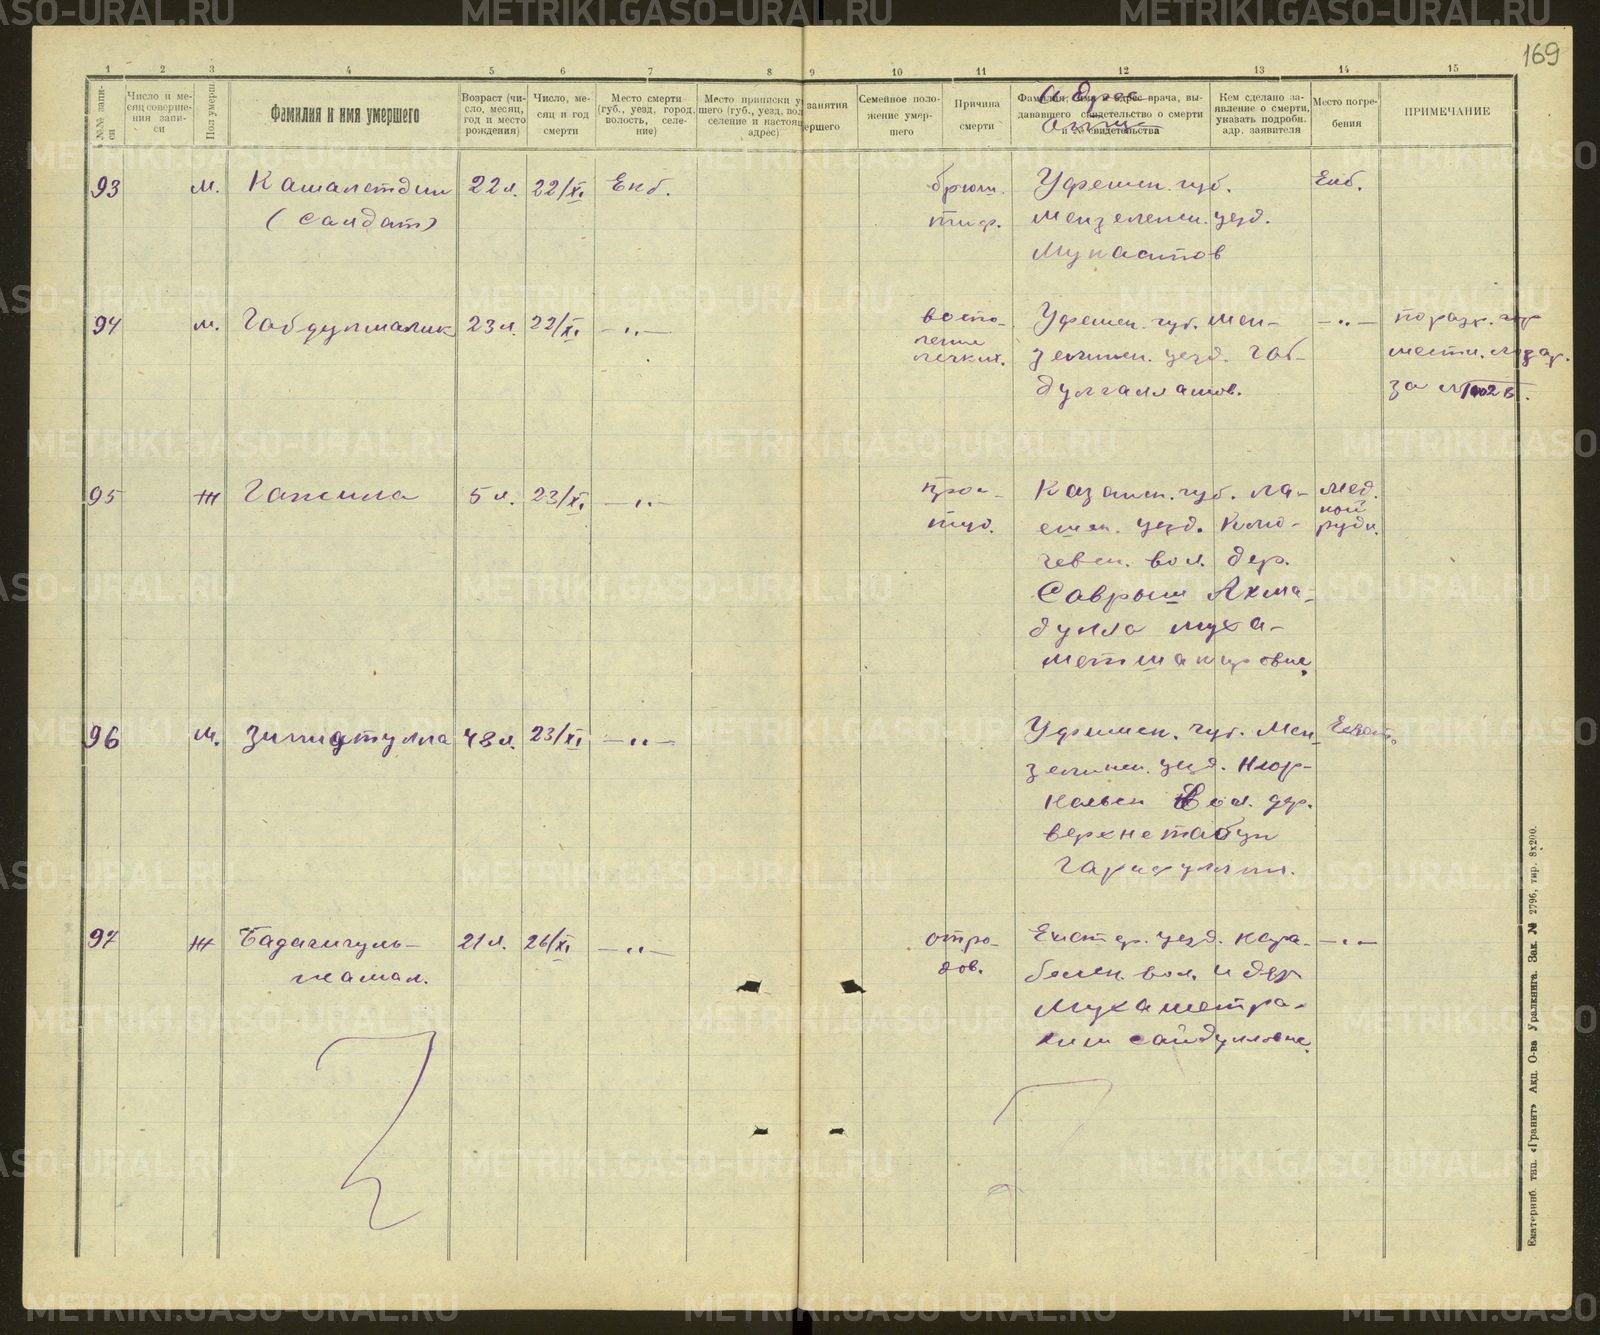 169
1 2 3 4 5 6 7 8 9 10 11 12 13 14 15
№№ запи-
си
Число и ме-
сяц соверше-
ния запи-
си
Пол умерш.
Фамилия и имя умершего
Возраст (чи-
сло, месяц,
год и место
рождения)
Число, ме-
сяц и год
смерти
Место смерти
(губ., уезд, город,
волость, селе-
ние)
Место приписки у
шего (губ., уезд, вол
селение и настоящ
адрес)
занятия
ершего
Семейное поло-
жение умер-
шего
Причина
смерти
Фамилия, имя и адрес врача, вы-
дававшего свидетельство о смерти
и № свидетельства
Адрес
Кем сделано за-
явление о смерти,
указать подробн.
адр. заявителя
Место погре-
бения
ПРИМЕЧАНИЕ
93 м. Камалетдин 22 л. 22/XI Екб. брюш. Уфимск. губ. Екб.
(солдат) тиф. Мензелинск. уезд.
94 м. Габдулмалик 23 л. 22/XI —"— воспа- Уфимск. губ. Мен- —"—
ление зелинск. уезд. Габ-
легких. дулгаллямов.
за №1002 б.
95 ж 5 л. 23/XI —"— прос- Казанск. губ. Ла- Мед.
туд. ишев. уезд. Клю- ной
чевск. вол. дер. рудн.
Саврыш Ахма-
дулла Муха-
метшакировне
96 м. Зиннатулла 48 л. 23/XI —"— Уфимск. губ. Мен- Екат.
зелинск. уезд.
вол. дер.
верхнетабын
Гарифуллин.
97 ж Бадагигуль- 21 л. 26/XI —"— отра- Екатер. уезд. Кара- —"—
жамал. вол. и дер
Мухаметра-
хим Сайдулловне
Екатеринб. тип. «Гранит» Акц. О-ва Уралкнига. Зак. № 2796, тир. 8х200.
METRIKI.GASO-URAL.RU